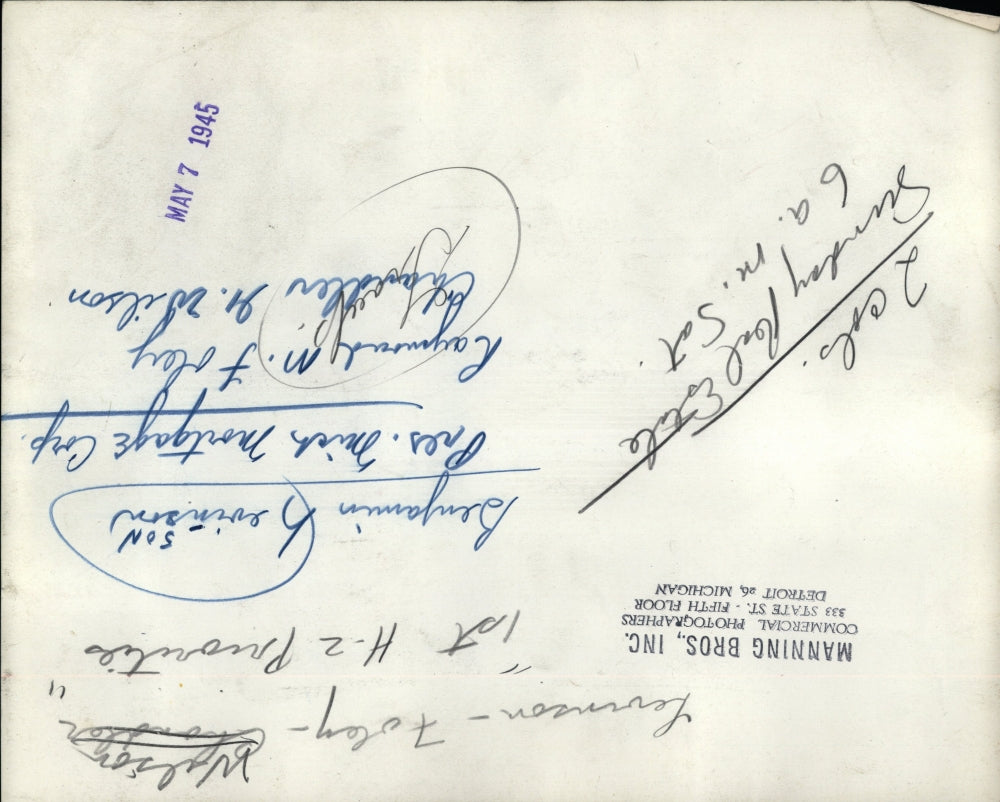 Levinson - Foley - Wilson
"1st H-2 Priorities"
MANNING BROS., INC.
COMMERCIAL PHOTOGRAPHERS
333 STATE ST. - FIFTH FLOOR
DETROIT 26, MICHIGAN
Benjamin Levinson
SON
Pres. Mich Mortgage Corp.
Raymond M. Foley
Chandler H. Wilson
2 cols
Sunday Real Estate
6 a.m. Sat.
MAY 7 1945